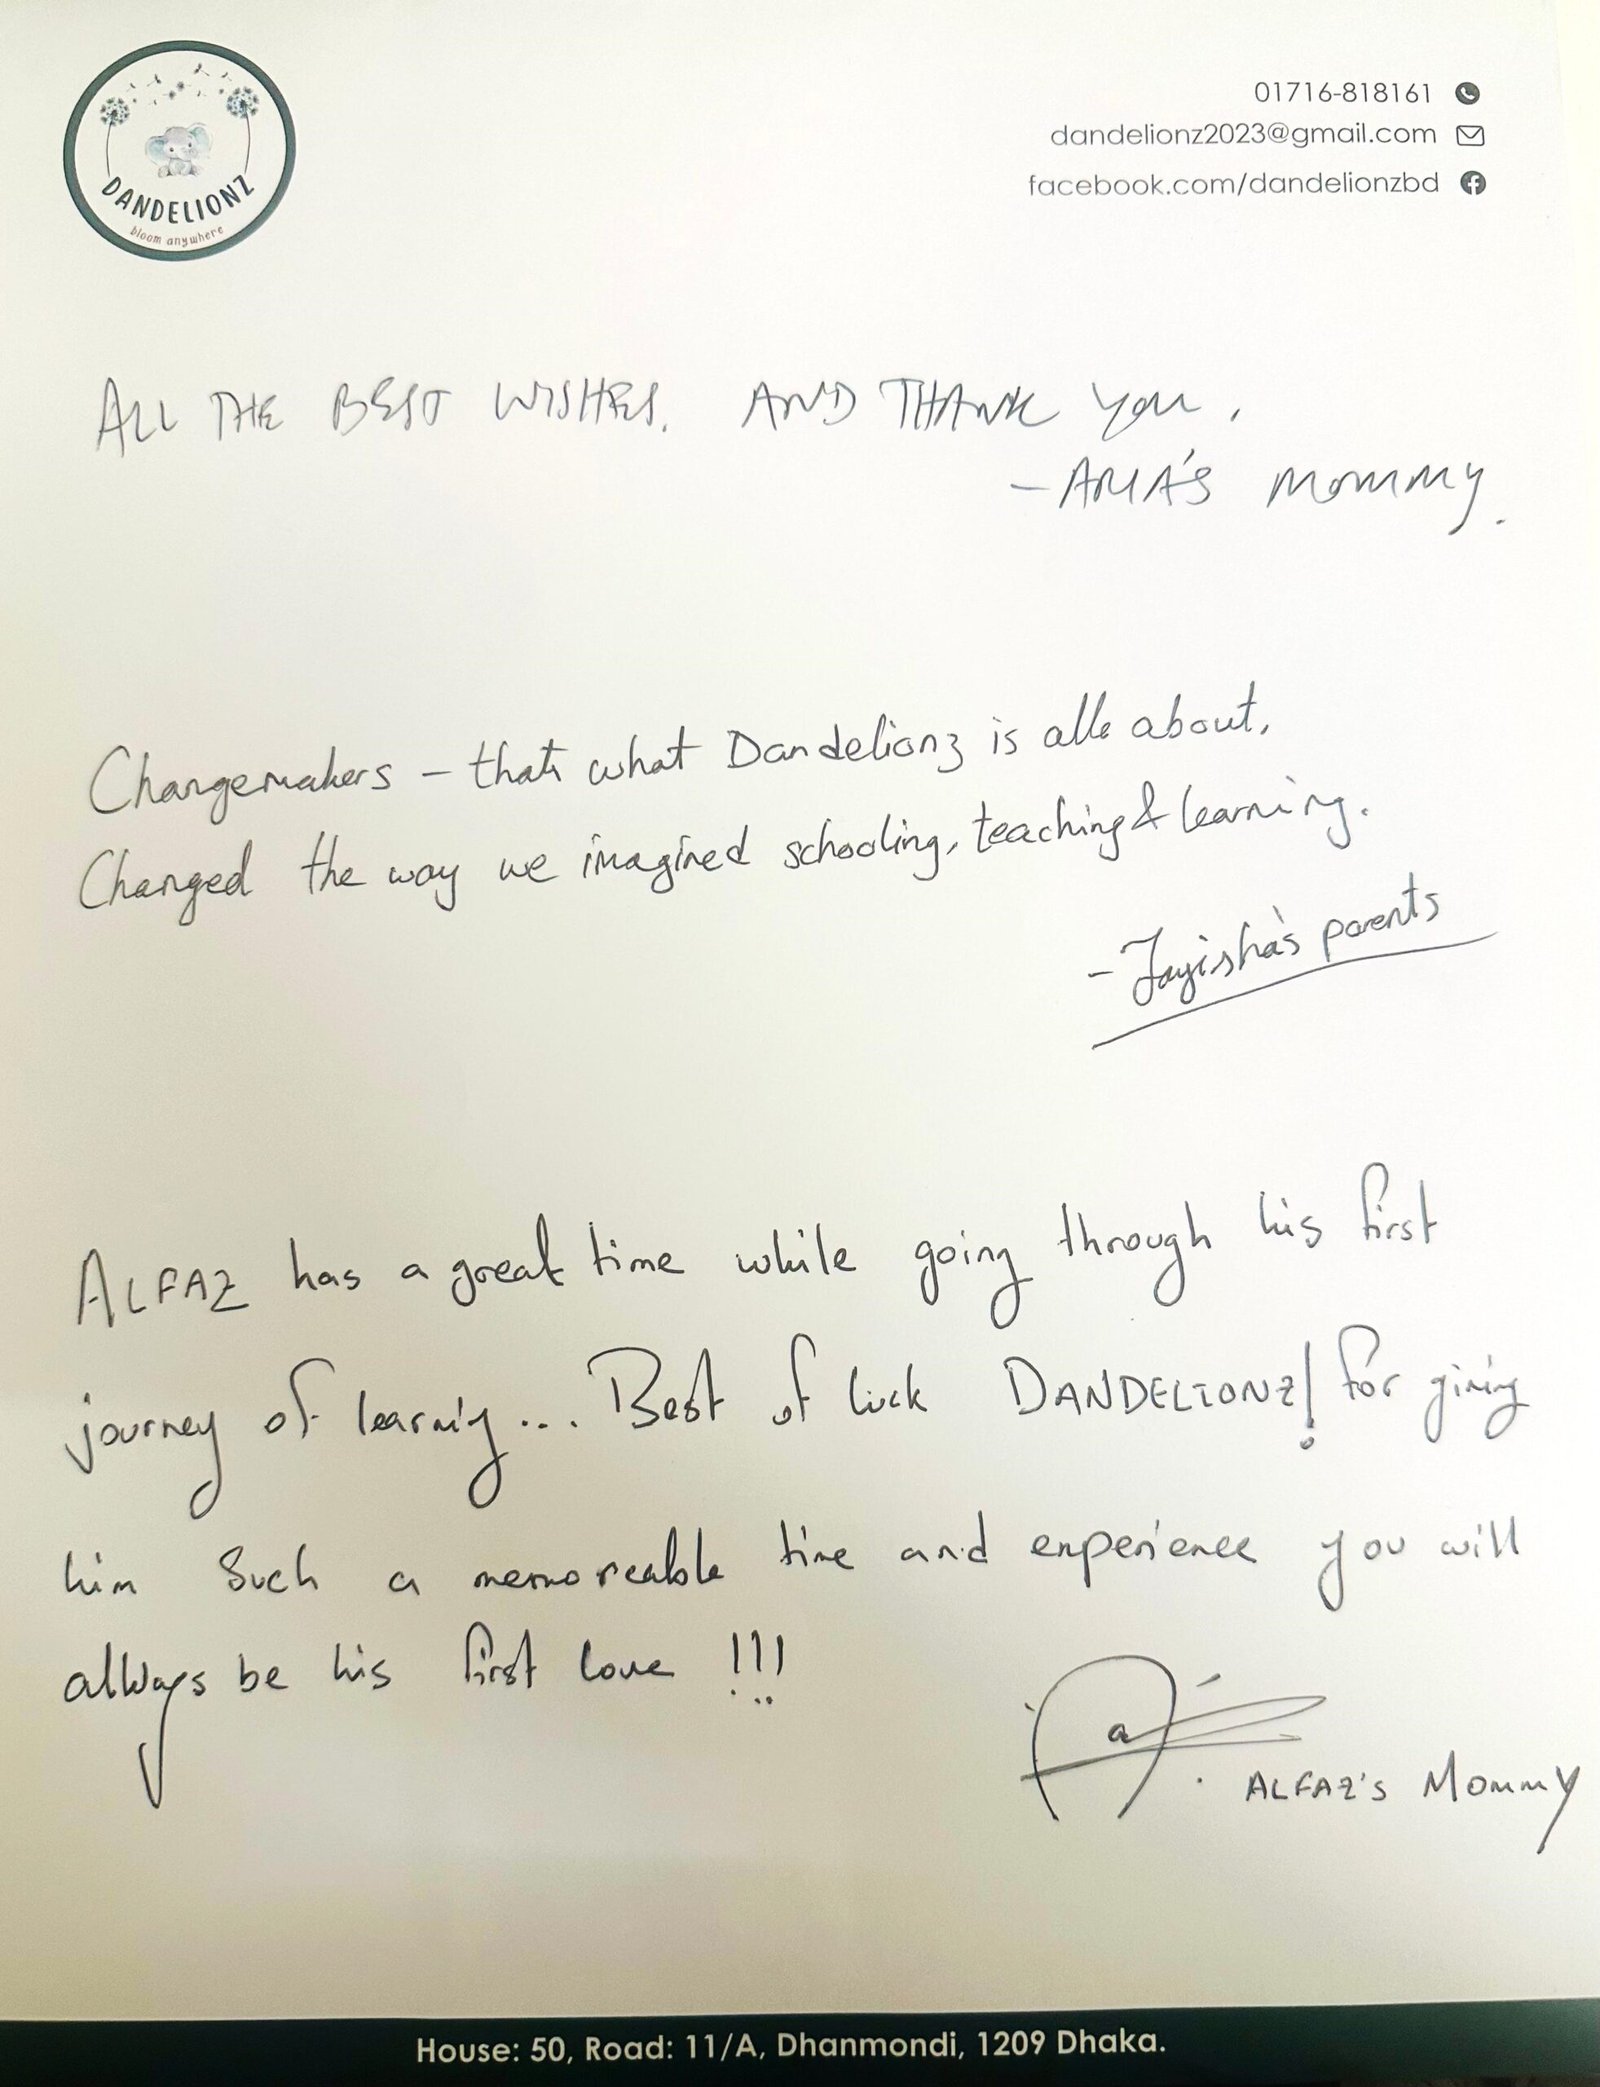 DANDELIONZ
bloom anywhere
01716-818161
dandelionz2023@gmail.com
facebook.com/dandelionzbd
ALL THE BEST WISHES. AND THANK YOU.
- ARIA'S MOMMY.
Changemakers - thats what Dandelionz is alle about.
Changed the way we imagined schooling, teaching & learning.
- Jayisha's parents
ALFAZ has a great time while going through his first
journey of learnig... Best of luck DANDELIONZ! for giving
him such a memoreable time and experience you will
allways be his first love !!!
ALFAZ's Mommy
House: 50, Road: 11/A, Dhanmondi, 1209 Dhaka.